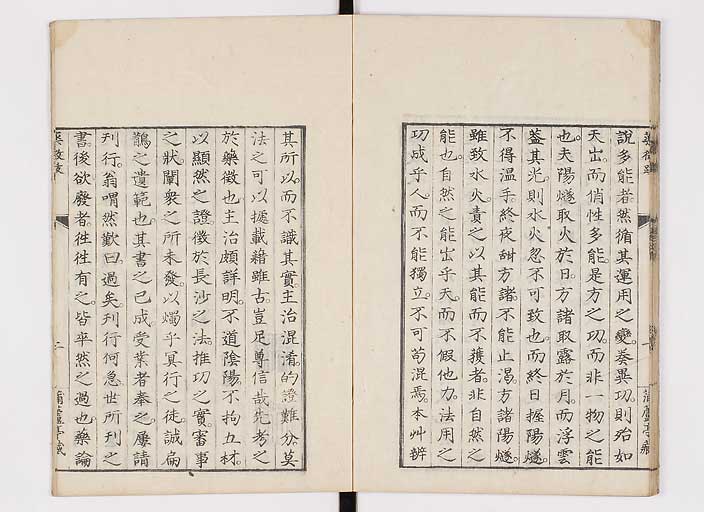 說多能者。然循其運用之變。奏異功。則殆如
天出。而俏性多能。是方之功。而非一物之能
也。夫陽燧取火於日。方諸取露於月。而浮雲
蓋其光。則水火忽不可致也。而終日握陽燧。
不得溫手。終夜甜方諸。不能止渴。方諸陽燧。
雖致水火。責之以其能而不獲者。非自然之
能也。自然之能。出乎天。而不假他力。法用之
功。成乎人。而不能獨立。不可苟混焉。本艸辨
其所以。而不識其實。主治混淆。的證難分。莫
法之可以據。載籍雖古。豈足尊信哉。先考之
於藥徵也。主治頗詳明。不道陰陽。不拘五材。
以顯然之證。徵於長沙之法。推功之實。審事
之狀。闡衆之所未發。以燭乎冥行之徒。誠扁
鵲之遺範也。其書之已成。受業者奉之。屢請
刊行。翁喟然歎曰。過矣。刊行何急。世所刊之
書。後欲廢者。往往有之。皆卒然之過也。藥論